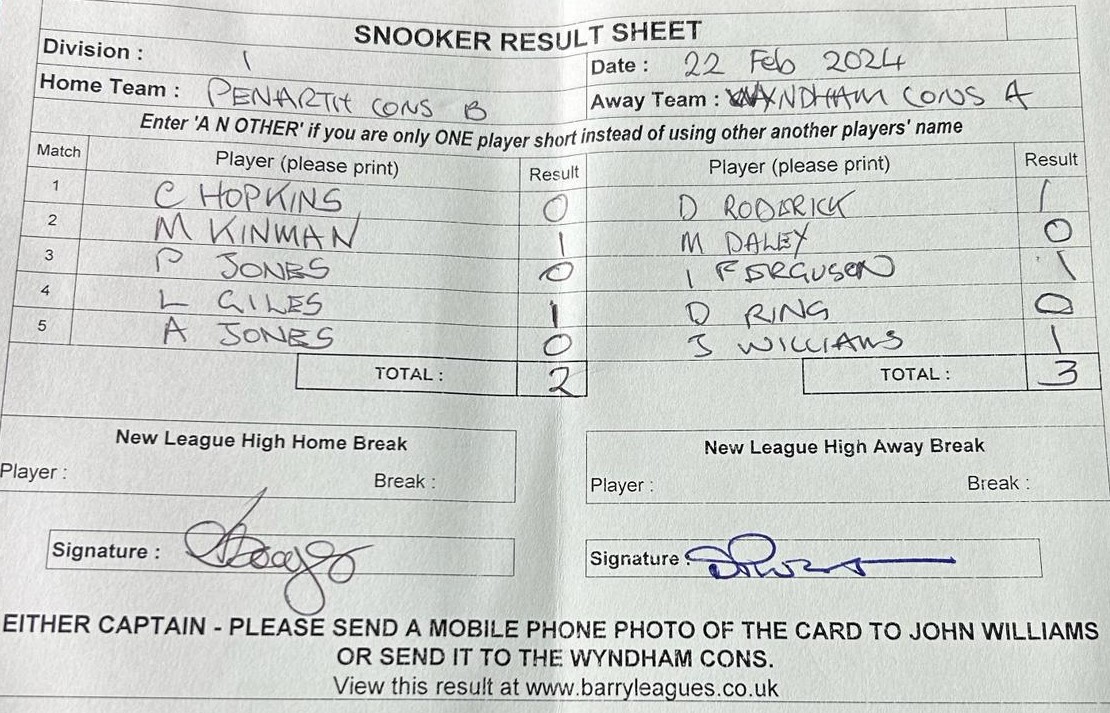 SNOOKER RESULT SHEET
Division : 1 Date : 22 Feb 2024
Home Team : PENARTH CONS B Away Team : WYNDHAM CONS A
Enter 'A N OTHER' if you are only ONE player short instead of using other another players' name
Match Player (please print) Result Player (please print) Result
1 C HOPKINS 0 D RODERICK 1
2 M KINMAN 1 M DALEY 0
3 P JONES 0 I FERGUSON 1
4 L GILES 1 D RING 0
5 A JONES 0 J WILLIAMS 1
TOTAL : 2 TOTAL : 3
New League High Home Break New League High Away Break
Player : Break : Player : Break :
Signature : Signature :
EITHER CAPTAIN - PLEASE SEND A MOBILE PHONE PHOTO OF THE CARD TO JOHN WILLIAMS
OR SEND IT TO THE WYNDHAM CONS.
View this result at www.barryleagues.co.uk